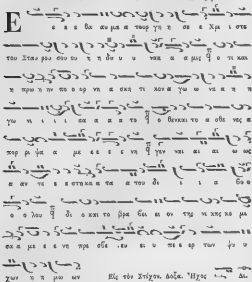 Ε
ε ε θαυμα τουργη σε ε Χρι στε
του Σταυρου σου η η δυ υ να α α μις ο τι και
η πρωην πο ορ νη α σκη τι κον α γω ω να η η
γω νι ι ι κα α α α το ο θεν και το α σθε νες α
πορ ρι ψα α με ε ε ε νη γεν ναι αι αι ω ως
α αν τε ε ε στη κα α τα α του δι ι ι α βο ο
ο ο λου δι ο και το βρα βει ει ον της νι κης κο μι
σα α με ε ε νη πρε σβε ευ ει υ πε ερ των ψυ υ
χων η η μω ων Εις τον Στίχον, Δόξα. Ἦχος Δι.